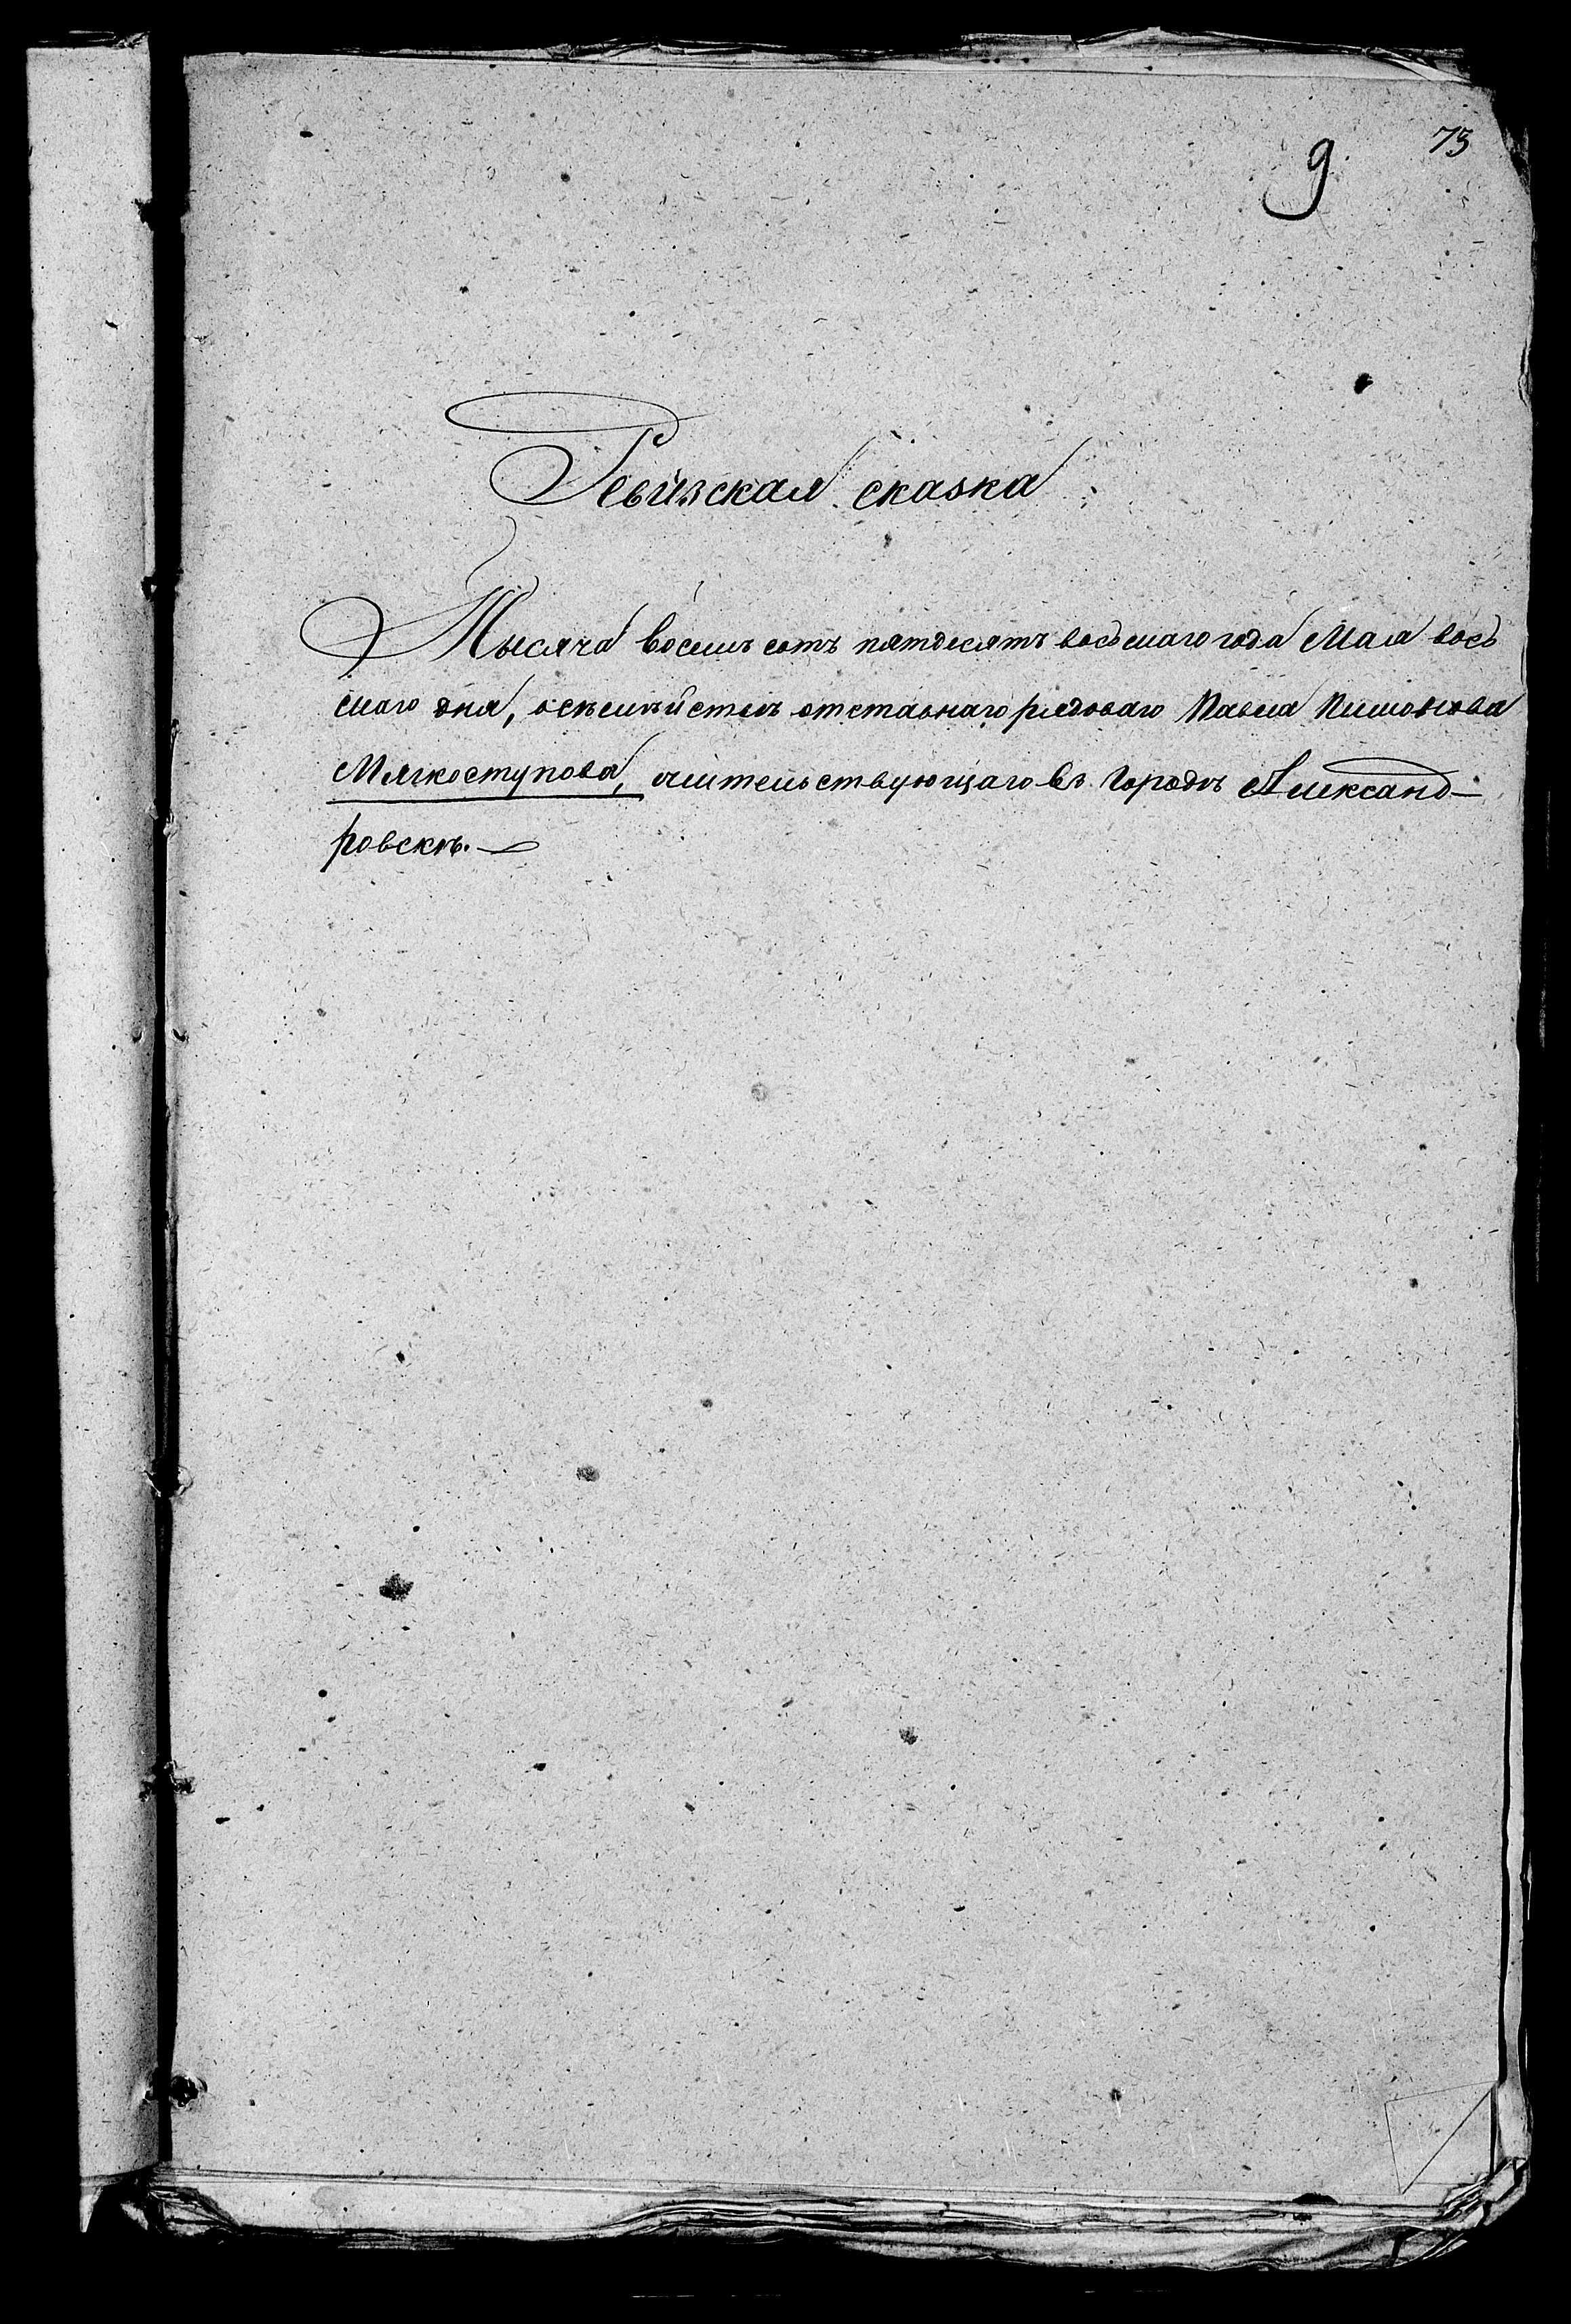 73
9.
Ревизская сказка
Тысяча восемь сотъ пятдесятъ восьмаго года Мая вось
маго дня, осѣмѣйстьѣ отставнаго рядоваго Павла
Мягкоступова, жительствующаго въ городѣ Александ-
ровскѣ.